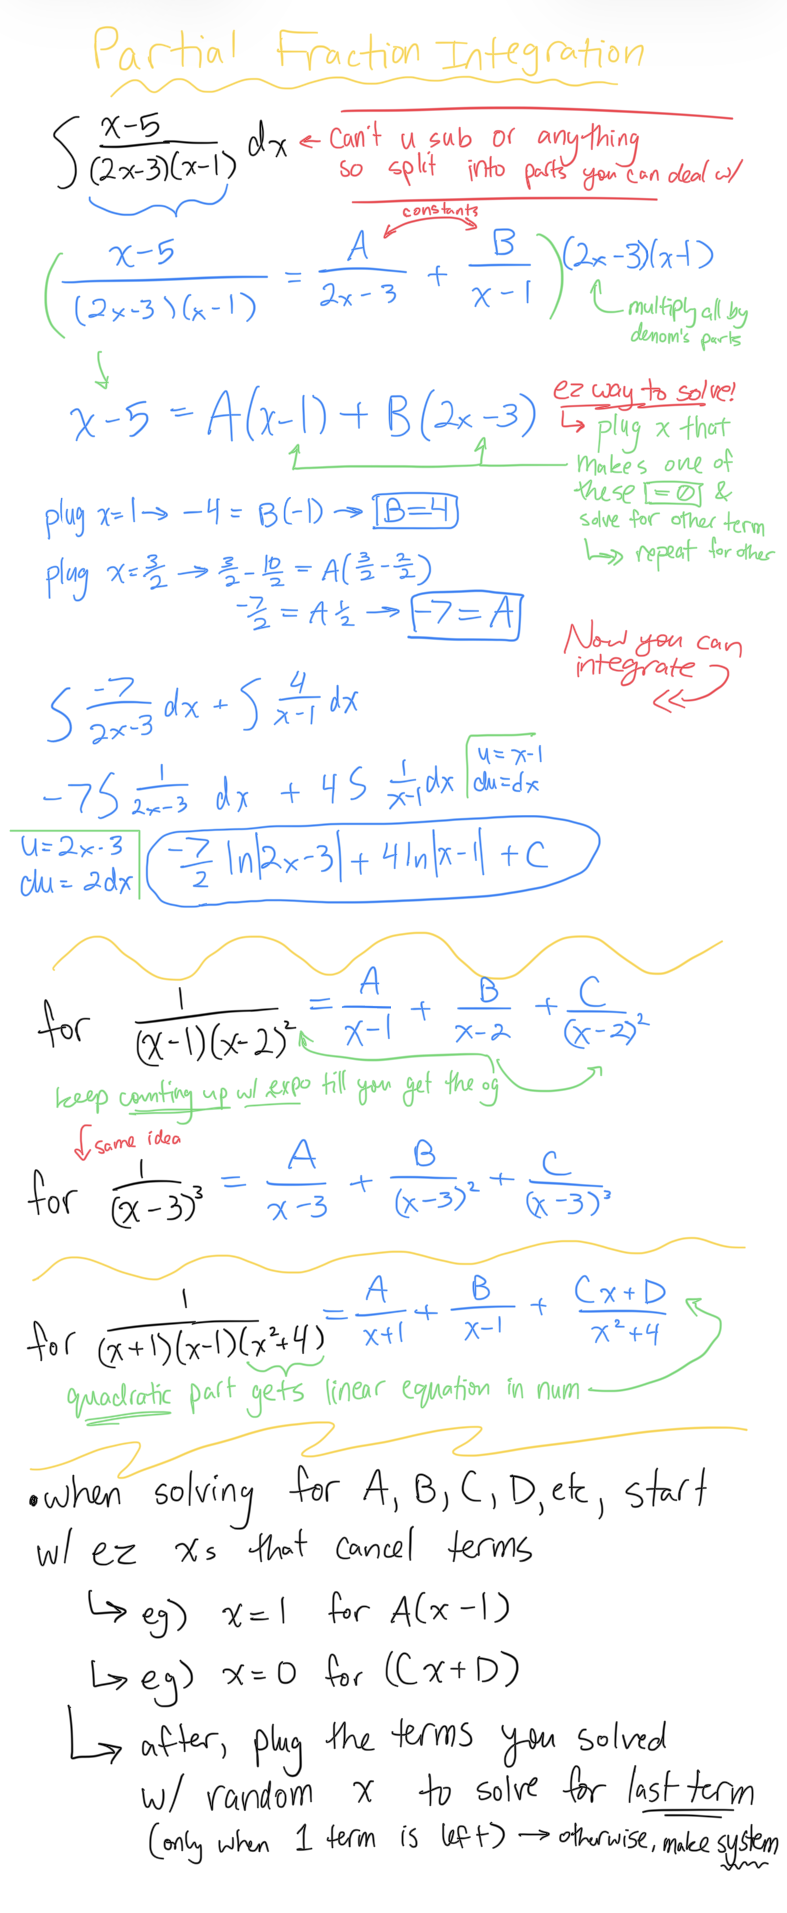 Partial Fraction Integration
∫ x-5 / (2x-3)(x-1) dx ← Can't u sub or anything
so split into parts you can deal w/
constants
( x-5 / (2x-3)(x-1) = A / 2x-3 + B / x-1 ) (2x-3)(x-1)
multiply all by
denom's parts
x-5 = A(x-1) + B(2x-3)
ez way to solve!
↳ plug x that
makes one of
these =0 &
solve for other term
↳ repeat for other
plug x=1 → -4 = B(-1) → B=4
plug x=3/2 → 3/2 - 10/2 = A(3/2 - 2/2)
-7/2 = A 1/2 → -7 = A
Now you can
integrate
∫ -7 / 2x-3 dx + ∫ 4 / x-1 dx
-7∫ 1 / 2x-3 dx + 4∫ 1 / x-1 dx
u=x-1
du=dx
u=2x-3
du=2dx
-7/2 ln|2x-3| + 4ln|x-1| + C
for 1 / (x-1)(x-2)² = A / x-1 + B / x-2 + C / (x-2)²
keep counting up w/ expo till you get the og
same idea
for 1 / (x-3)³ = A / x-3 + B / (x-3)² + C / (x-3)³
for 1 / (x+1)(x-1)(x²+4) = A / x+1 + B / x-1 + Cx+D / x²+4
quadratic part gets linear equation in num
•when solving for A, B, C, D, etc, start
w/ ez xs that cancel terms
↳ eg) x=1 for A(x-1)
↳ eg) x=0 for (Cx+D)
↳ after, plug the terms you solved
w/ random x to solve for last term
(only when 1 term is left) → otherwise, make system